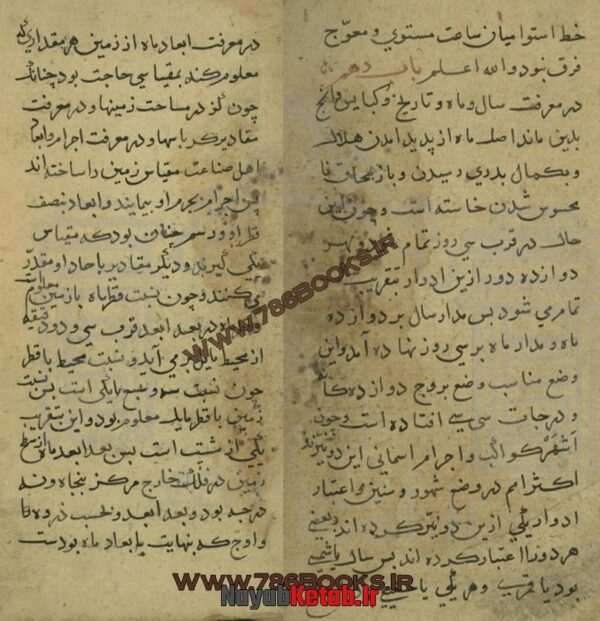 خط استوا میان ساعت مستوی و معوّج
فرق نبود والله اعلم باب دهم
در معرفت سال و ماه و تاریخ
بدین ماند اصل ماه از پدید امدن هلال
و بکمال بدری رسیدن و باز بمحاق تا
محبوس شدن خاسته است و چون این
حال در قرب سی روز تمام
دوازده دور ازین ادوار بتقریب
تمام می شود بس مدار سال بر دوازده
ماه و مدار ماه بر سی روز نهاده آمد و این
وضع مناسب وضع بروج دوازده کا
و درجات سی سی افتاده است و چون
اشهر کواکب و اجرام اسمانی این دو نیرند
اکثر امم در وضع شهور و سنین اعتبار
ادوار یکی ازین دو نیّر کرده اند و بعضی
هر دو را اعتبار کرده اند بس سال یا شمسی
بود یا قمری و هر یکی یا حقیقی
در معرفت ابعاد ماه از زمین هر مقداری که
معلوم کنند بمقیاسی حاجت بود چنانک
چون گز در مساحت زمینها و در معرفت
مقادیر کرباسها و در معرفت اجرام و ابعاد
اهل صناعت مقیاس زمین را ساخته اند
پس اجرام بجرم او بیمایند و ابعاد بنصف
قطر او و رسم چنان بود که مقیاس
یکی گیرند و دیگر مقادیر باحاد او مقدّر
می کنند و چون نسبت قطر ماه با زمین معلوم
ماه در بعد ابعد قرب سی و دو دقیقه
از محیط می آید و نسبت محیط با قطر
چون نسبت سه و سبع با یکی است بس نسبت
زمین با قطر ماه معلوم بود و این بتقریب
یکی از شست است بس بعد ابعد ماه
زمین در فلک خارج مرکز بنجاه و نه
درجه بود و بعد ابعد و بحسب ذروه کا
و اوج که نهایت ابعاد ماه بودست
WWW.786BOOKS.IR
WWW.786BOOKS.IR
NayabKetab.Ir